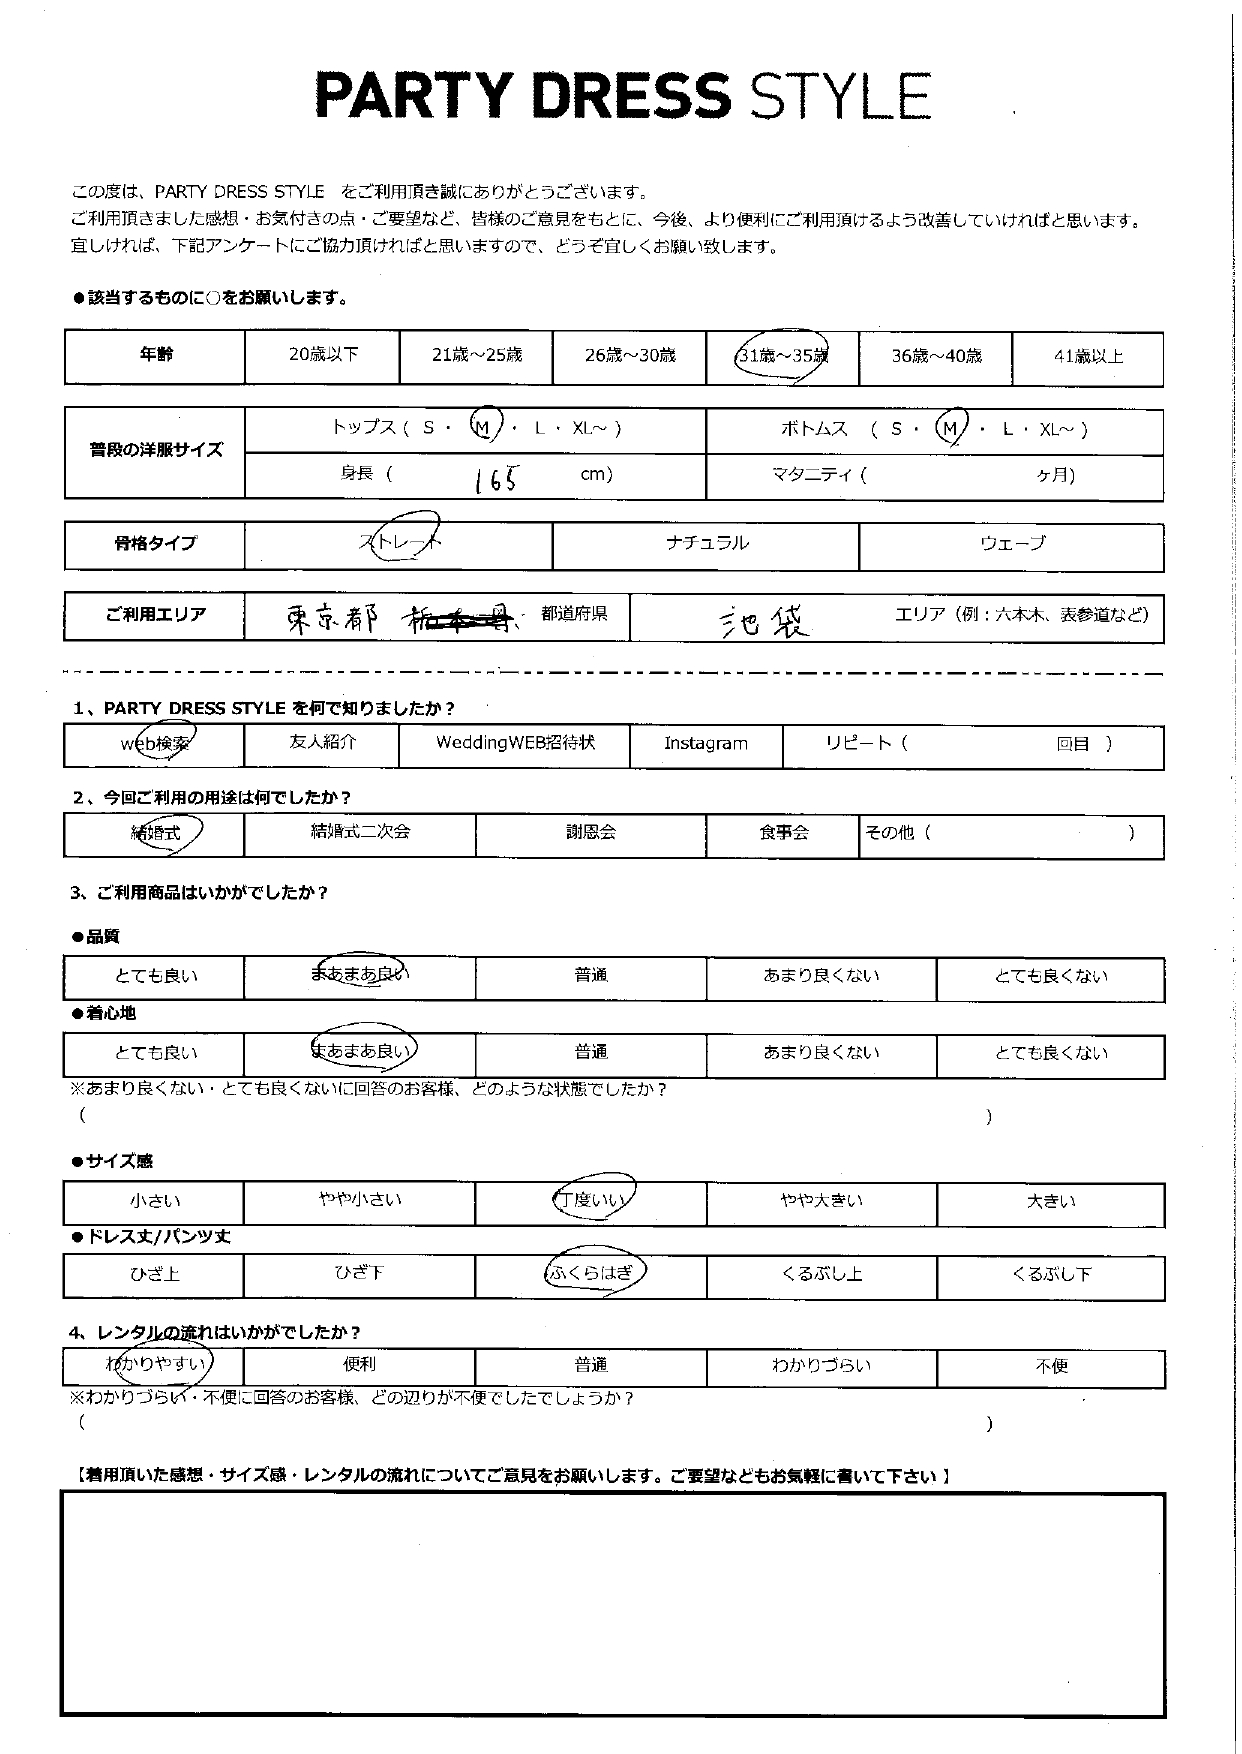 PARTY DRESS STYLE
この度は、PARTY DRESS STYLE をご利用頂き誠にありがとうございます。
ご利用頂きました感想・お気付きの点・ご要望など、皆様のご意見をもとに、今後、より便利にご利用頂けるよう改善していければと思います。
宜しければ、下記アンケートにご協力頂ければと思いますので、どうぞ宜しくお願い致します。
●該当するものに○をお願いします。
年齢 20歳以下 21歳～25歳 26歳～30歳 31歳～35歳 36歳～40歳 41歳以上
普段の洋服サイズ トップス ( S ・ M ・ L ・ XL～ ) ボトムス ( S ・ M ・ L ・ XL～ )
身長 ( 165 cm) マタニティ ( ヶ月)
骨格タイプ ストレート ナチュラル ウェーブ
ご利用エリア 東京都 栃木県 都道府県 池袋 エリア（例：六本木、表参道など）
1、PARTY DRESS STYLE を何で知りましたか？
web検索 友人紹介 WeddingWEB招待状 Instagram リピート ( 回目 )
2、今回ご利用の用途は何でしたか？
結婚式 結婚式二次会 謝恩会 食事会 その他 ( )
3、ご利用商品はいかがでしたか？
●品質
とても良い まあまあ良い 普通 あまり良くない とても良くない
●着心地
とても良い まあまあ良い 普通 あまり良くない とても良くない
※あまり良くない・とても良くないに回答のお客様、どのような状態でしたか？
( )
●サイズ感
小さい やや小さい 丁度いい やや大きい 大きい
●ドレス丈/パンツ丈
ひざ上 ひざ下 ふくらはぎ くるぶし上 くるぶし下
4、レンタルの流れはいかがでしたか？
わかりやすい 便利 普通 わかりづらい 不便
※わかりづらい・不便に回答のお客様、どの辺りが不便でしたでしょうか？
( )
【着用頂いた感想・サイズ感・レンタルの流れについてご意見をお願いします。ご要望などもお気軽に書いて下さい】